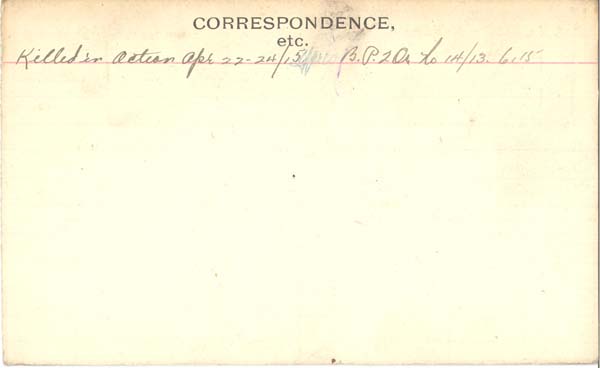 CORRESPONDENCE,
etc.
Killed in action Apr 22-24/15 B.P. 2 Do. No 14/13. 6.15